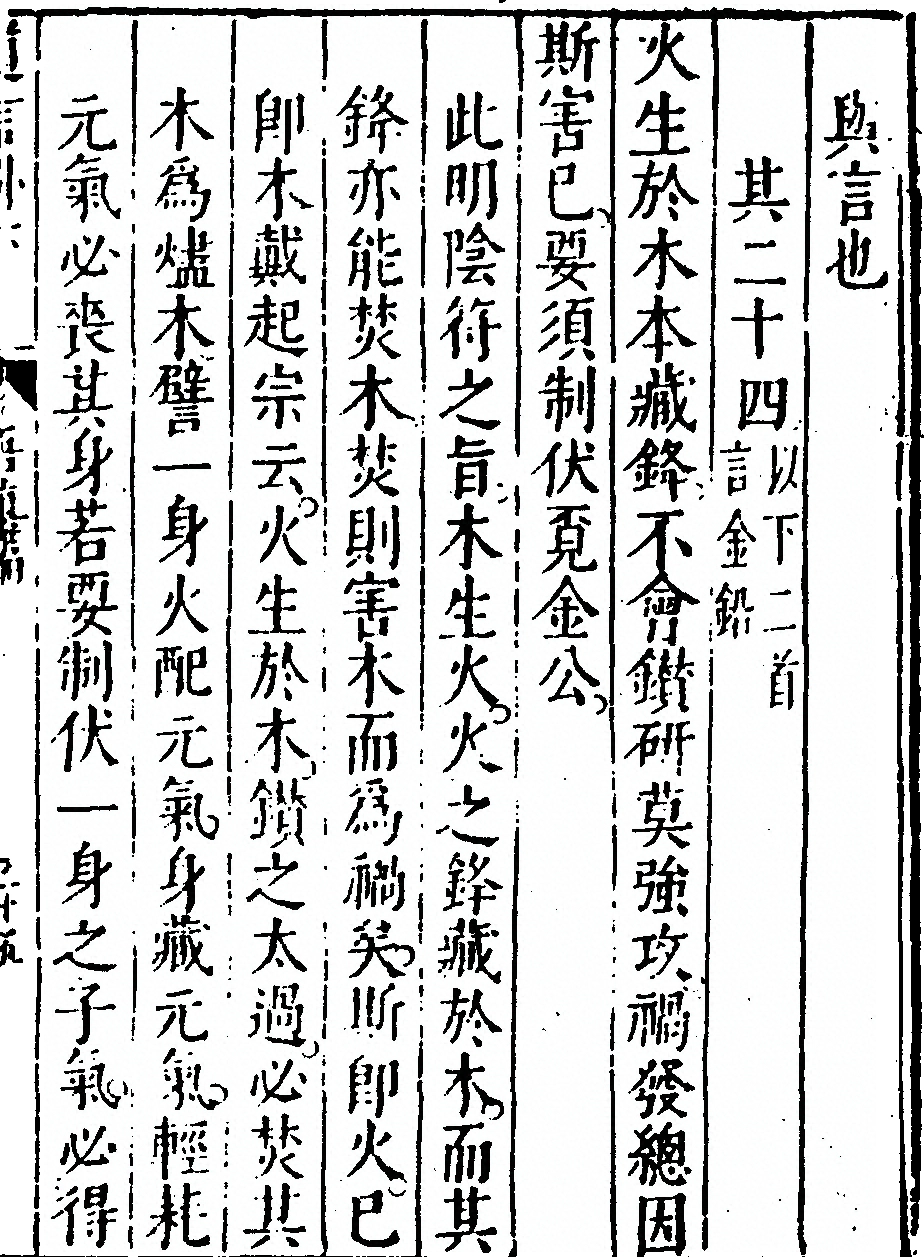 與言也
其二十四以下二首言金鉛
火生於木本藏鋒不會鑽研莫強攻禍發總因
斯害已要須制伏覓金公
此明陰符之旨木生火火之鋒藏於木而其
鋒亦能焚木焚則害木而為禍矣斯即火已
即木戴起宗云火生於木鑽之太過必焚其
木為燼木譬一身火配元氣身藏元氣輕耗
元氣必喪其身若要制伏一身之子氣必得